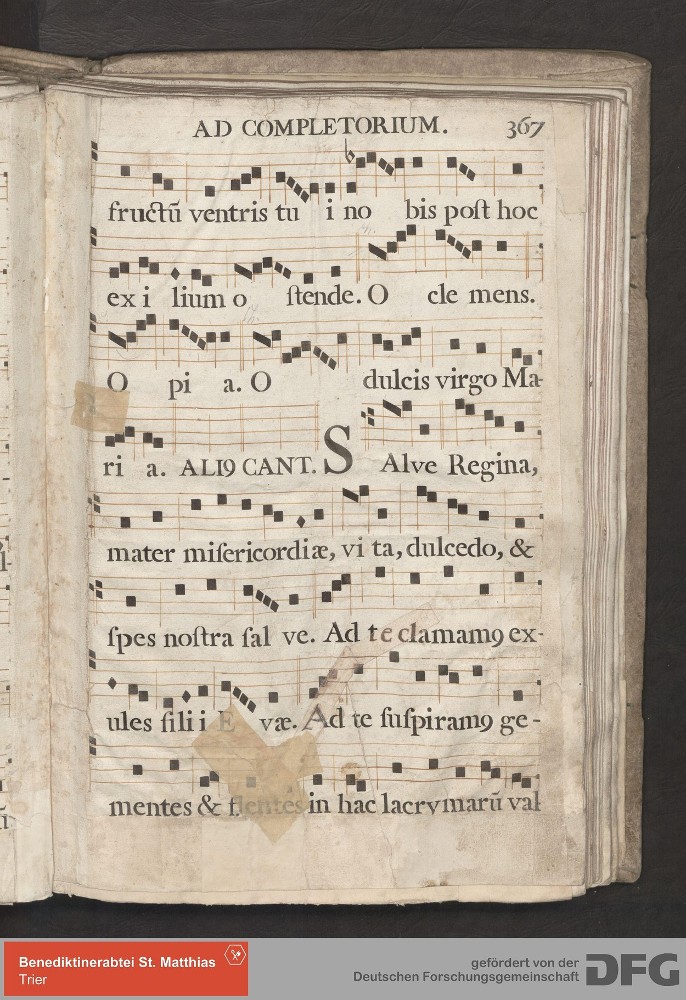 AD COMPLETORIUM. 367
fructū ventris tu i no bis poſt hoc
ex i lium o ſtende. O cle mens.
O pi a. O dulcis virgo Ma-
ri a. ALI9 CANT. S Alve Regina,
mater miſericordiæ, vi ta, dulcedo, &
ſpes noſtra ſal ve. Ad te clamam9 ex-
ules filii E væ. Ad te ſuſpiram9 ge-
mentes & flentes in hac lacrymarū val
Benediktinerabtei St. Matthias
Trier
gefördert von der
Deutschen Forschungsgemeinschaft
DFG